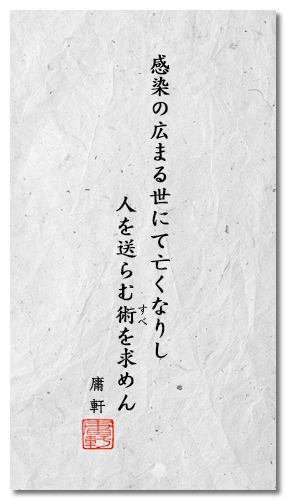 感染の広まる世にて亡くなりし
人を送らむ術を求めん
すべ
庸軒